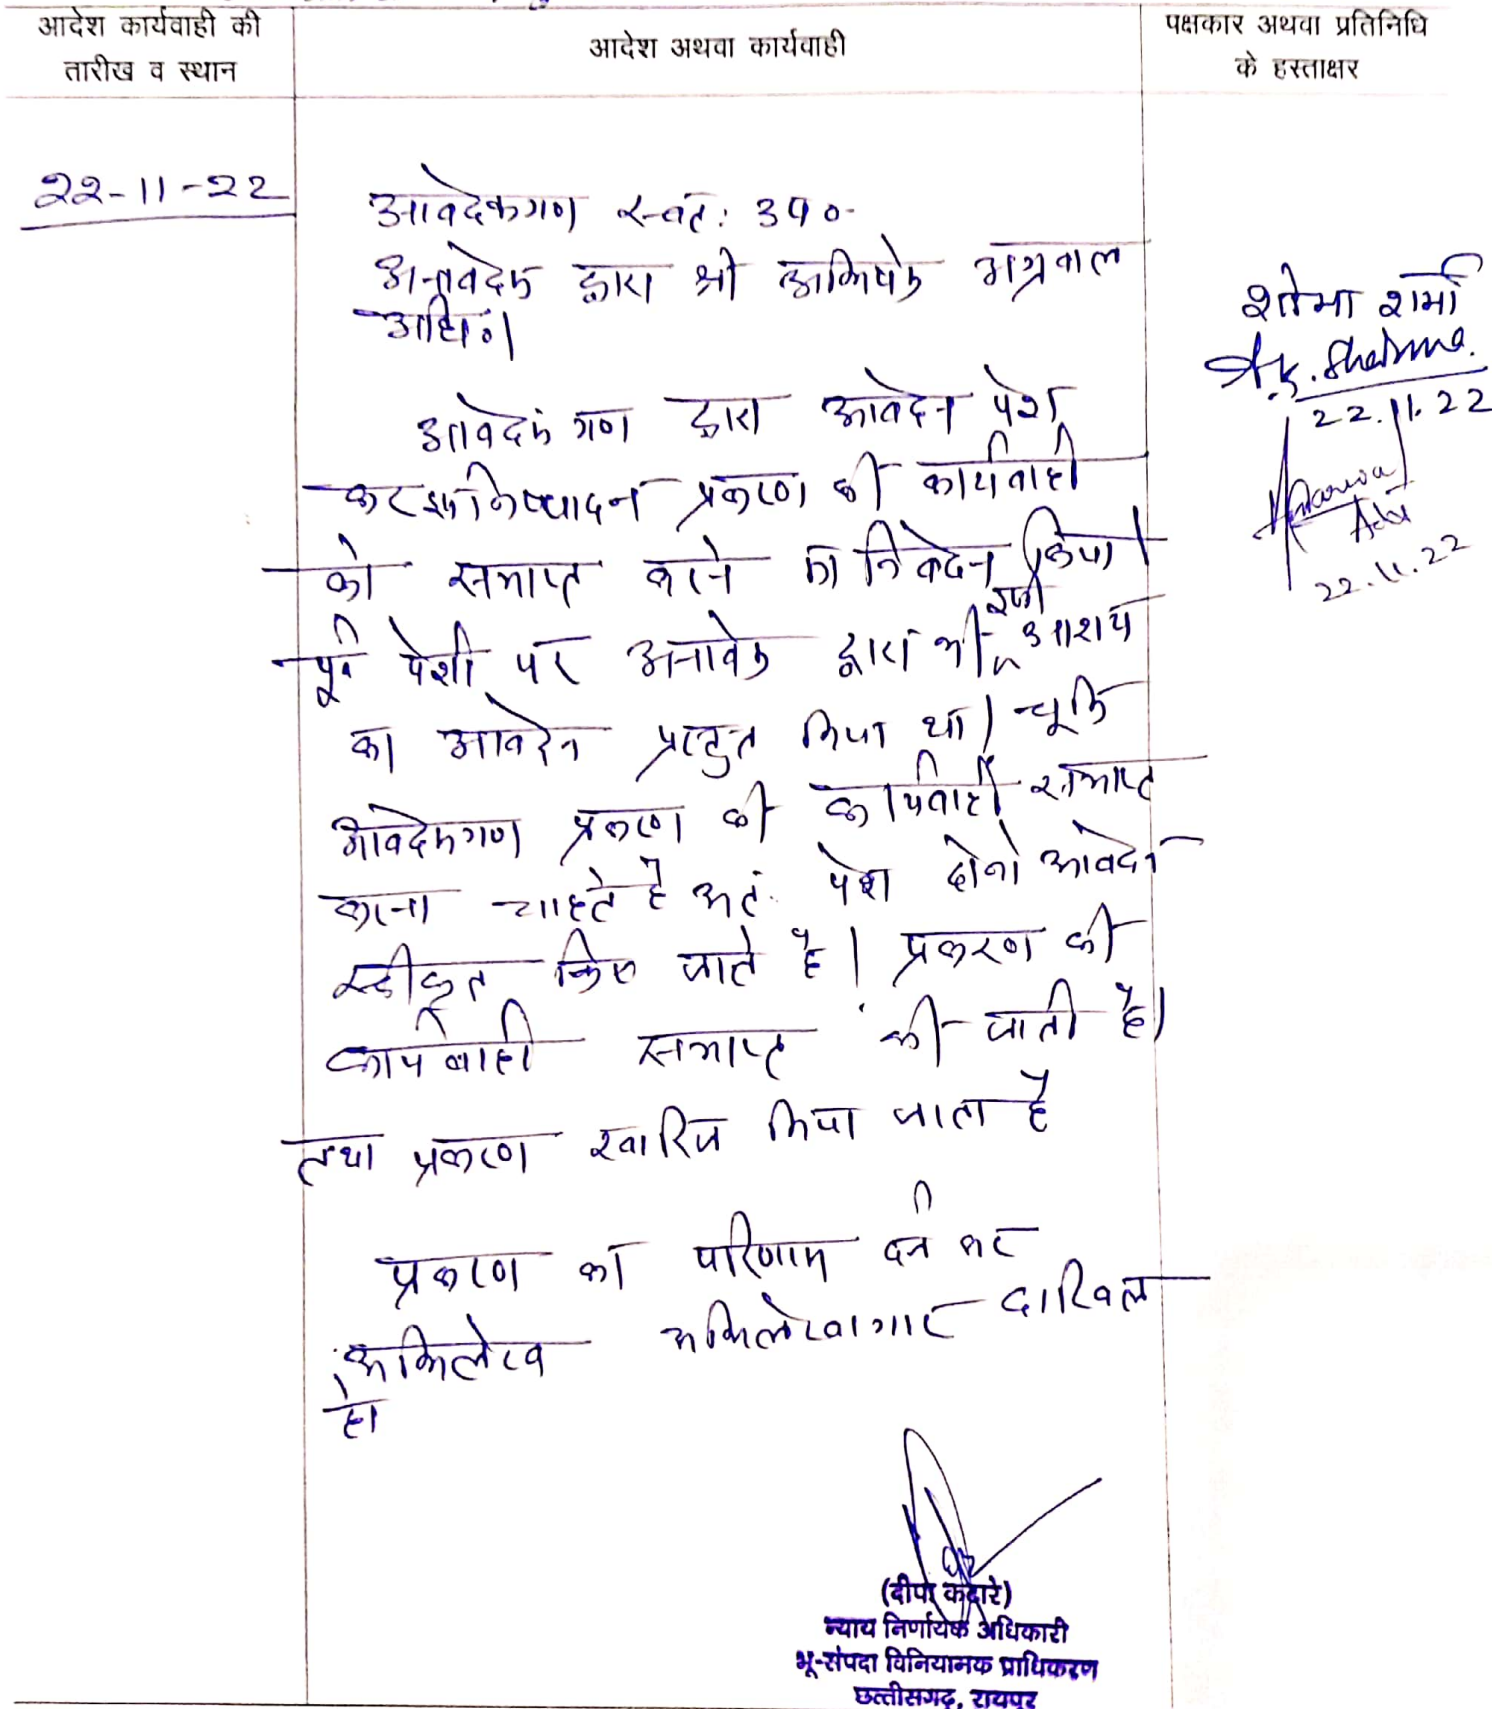 आदेश कार्यवाही की
तारीख व स्थान
आदेश अथवा कार्यवाही
पक्षकार अथवा प्रतिनिधि
के हस्ताक्षर
22-11-22
आवेदकगण स्वतः उप०
अनावेदक द्वारा श्री अभिषेक अग्रवाल
अधि०।
आवेदकगण द्वारा आवेदन पेश
कर निष्पादन प्रकरण की कार्यवाही
को समाप्त करने का निवेदन किया।
पूर्व पेशी पर अनावेक द्वारा भी इसी आशय
का आवेदन प्रस्तुत किया था। चूंकि
आवेदकगण प्रकरण की कार्यवाही समाप्त
करना चाहते है अतः पेश दोनो आवेदन
स्वीकृत किए जाते है। प्रकरण की
कार्यवाही समाप्त की जाती है।
तथा प्रकरण खारिज किया जाता है
प्रकरण का परिणाम दर्ज कर
अभिलेख अभिलेखागार दाखिल
हो
शोभा शर्मा
A.K. Sharma.
22.11.22
Adv
22.11.22
(दीपा कटारे)
न्याय निर्णायक अधिकारी
भू-संपदा विनियामक प्राधिकरण
छत्तीसगढ़, रायपुर